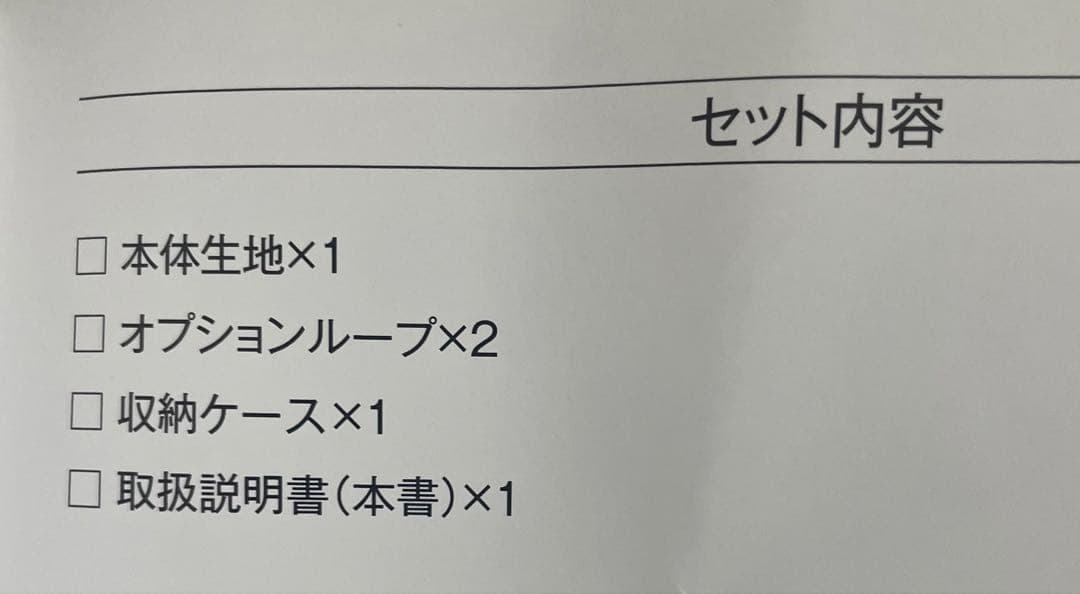 セット内容
□ 本体生地×1
□ オプションループ×2
□ 収納ケース×1
□ 取扱説明書(本書)×1